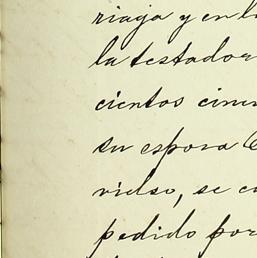 riaga y en l
la testador
cientos cinc
su esposa
vielso, se c
pedido por